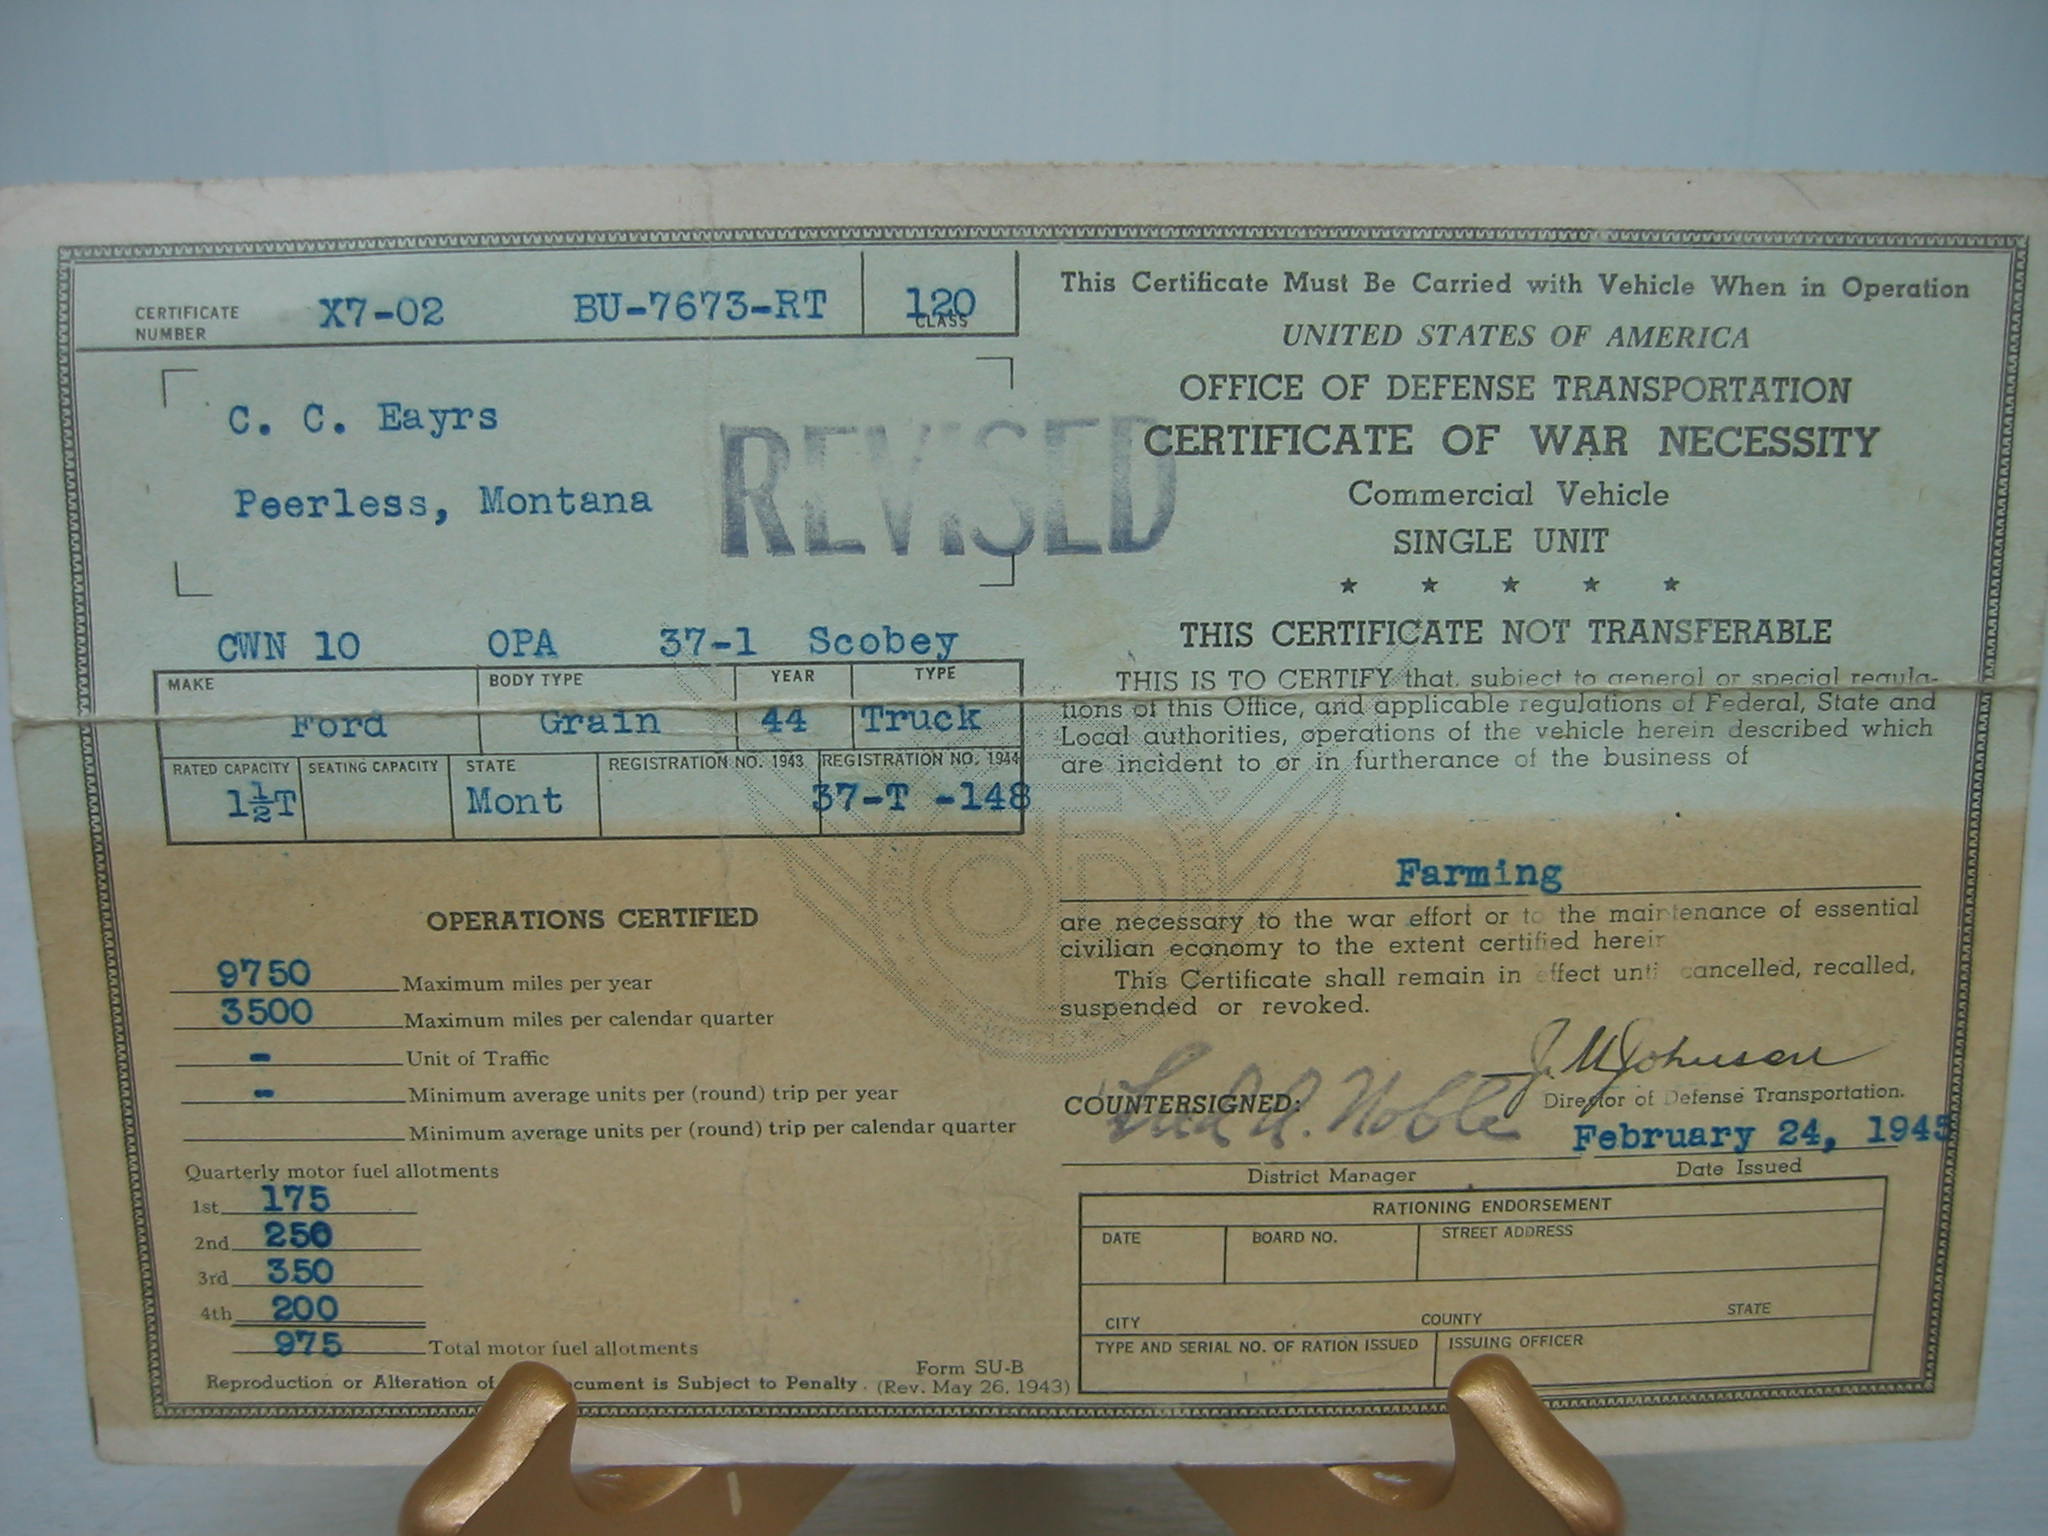 CERTIFICATE NUMBER X7-02 BU-7673-RT 120 CLASS
C. C. Eayrs
Peerless, Montana
REVISED
CWN 10 OPA 37-1 Scobey
MAKE BODY TYPE YEAR TYPE
Ford Grain 44 Truck
RATED CAPACITY SEATING CAPACITY STATE REGISTRATION NO. 1943 REGISTRATION NO. 1944
1½T Mont 37-T -148
OPERATIONS CERTIFIED
9750 Maximum miles per year
3500 Maximum miles per calendar quarter
- Unit of Traffic
- Minimum average units per (round) trip per year
Minimum average units per (round) trip per calendar quarter
Quarterly motor fuel allotments
1st 175
2nd 250
3rd 350
4th 200
975 Total motor fuel allotments
Reproduction or Alteration of cument is Subject to Penalty.
Form SU-B
(Rev. May 26, 1943)
This Certificate Must Be Carried with Vehicle When in Operation
UNITED STATES OF AMERICA
OFFICE OF DEFENSE TRANSPORTATION
CERTIFICATE OF WAR NECESSITY
Commercial Vehicle
SINGLE UNIT
★ ★ ★ ★ ★
THIS CERTIFICATE NOT TRANSFERABLE
THIS IS TO CERTIFY that, subject to general or special regula-
tions of this Office, and applicable regulations of Federal, State and
Local authorities, operations of the vehicle herein described which
are incident to or in furtherance of the business of
Farming
are necessary to the war effort or to the maintenance of essential
civilian economy to the extent certified herein
This Certificate shall remain in effect until cancelled, recalled,
suspended or revoked.
J. M. Johnson
Director of Defense Transportation.
COUNTERSIGNED: Noble
February 24, 1945
District Manager Date Issued
RATIONING ENDORSEMENT
DATE BOARD NO. STREET ADDRESS
CITY COUNTY STATE
TYPE AND SERIAL NO. OF RATION ISSUED ISSUING OFFICER